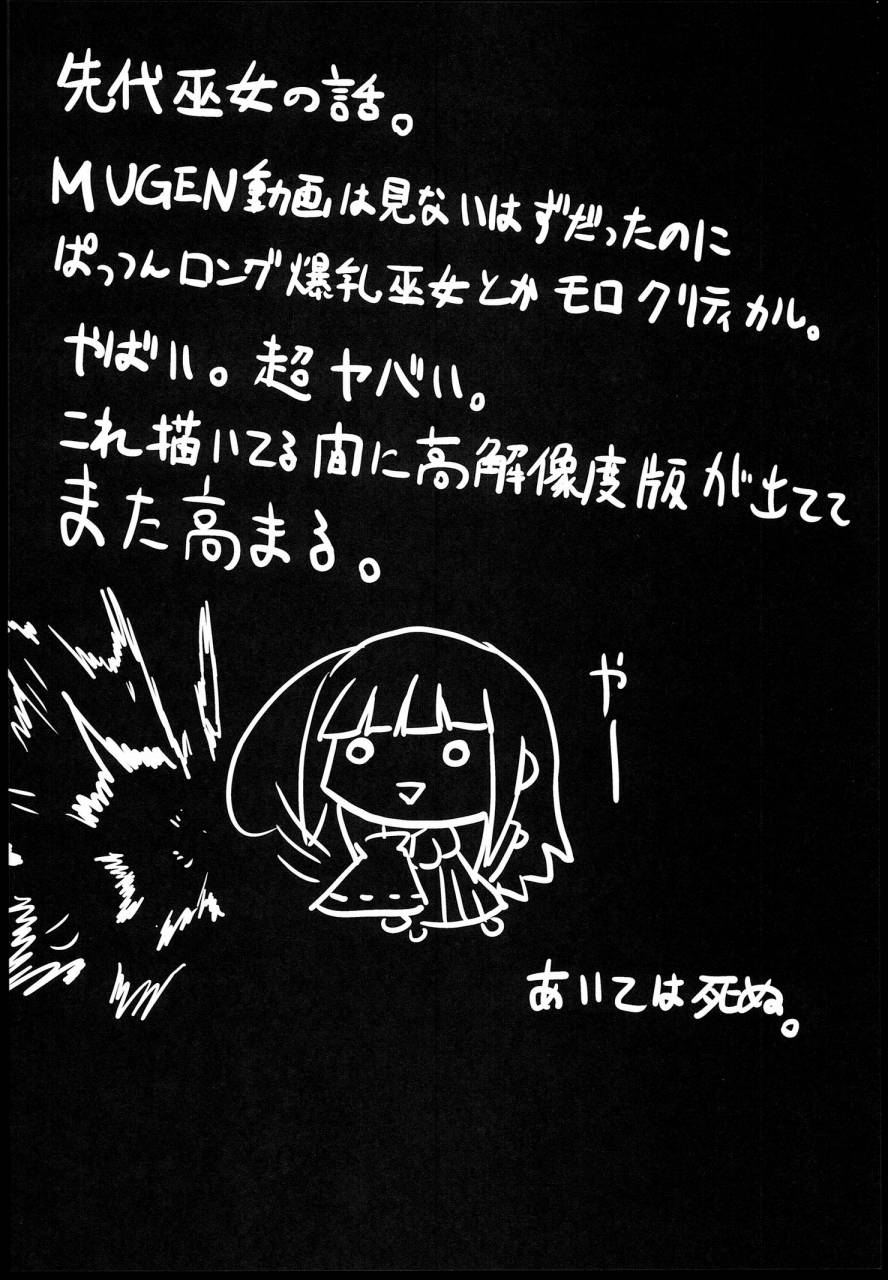 先代巫女の話。
MUGEN動画は見ないはずだったのに
ぱっつんロング爆乳巫女とかモロクリティカル。
やばい。超ヤバい。
これ描いてる間に高解像度版が出てて
また高まる。
やー
あいては死ぬ。